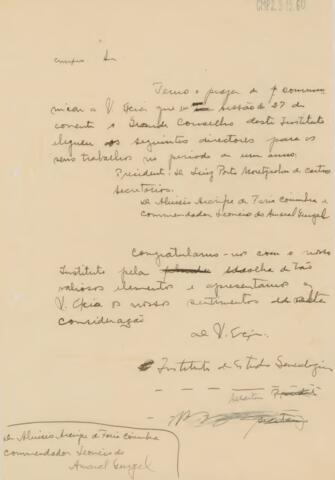 CMP2.3.19.60
Temos o prazer de communi
nicar a V. Excia que em sessão de 27 do
corrente o Grande Conselho deste Instituto
elegeu os seguintes directores para os
seus trabalhos no periodo de um anno.
Presidente: Dr Luiz Porto Moretzsohn de Castro
Secretarios.
Dr Aluisio Araripe de Faria Coimbra e
commendador Leoncio do Amaral Gurgel
Congratulamo-nos com o nosso
Instituto pela escolha de tão
valiosos elementos e apresentamos a
V. Excia os nossos sentimentos de
consideração
de V. Excia
Instituto de Estudos Genealogicos
Dr Aluisio Araripe de Faria Coimbra
commendador Leoncio do
Amaral Gurgel